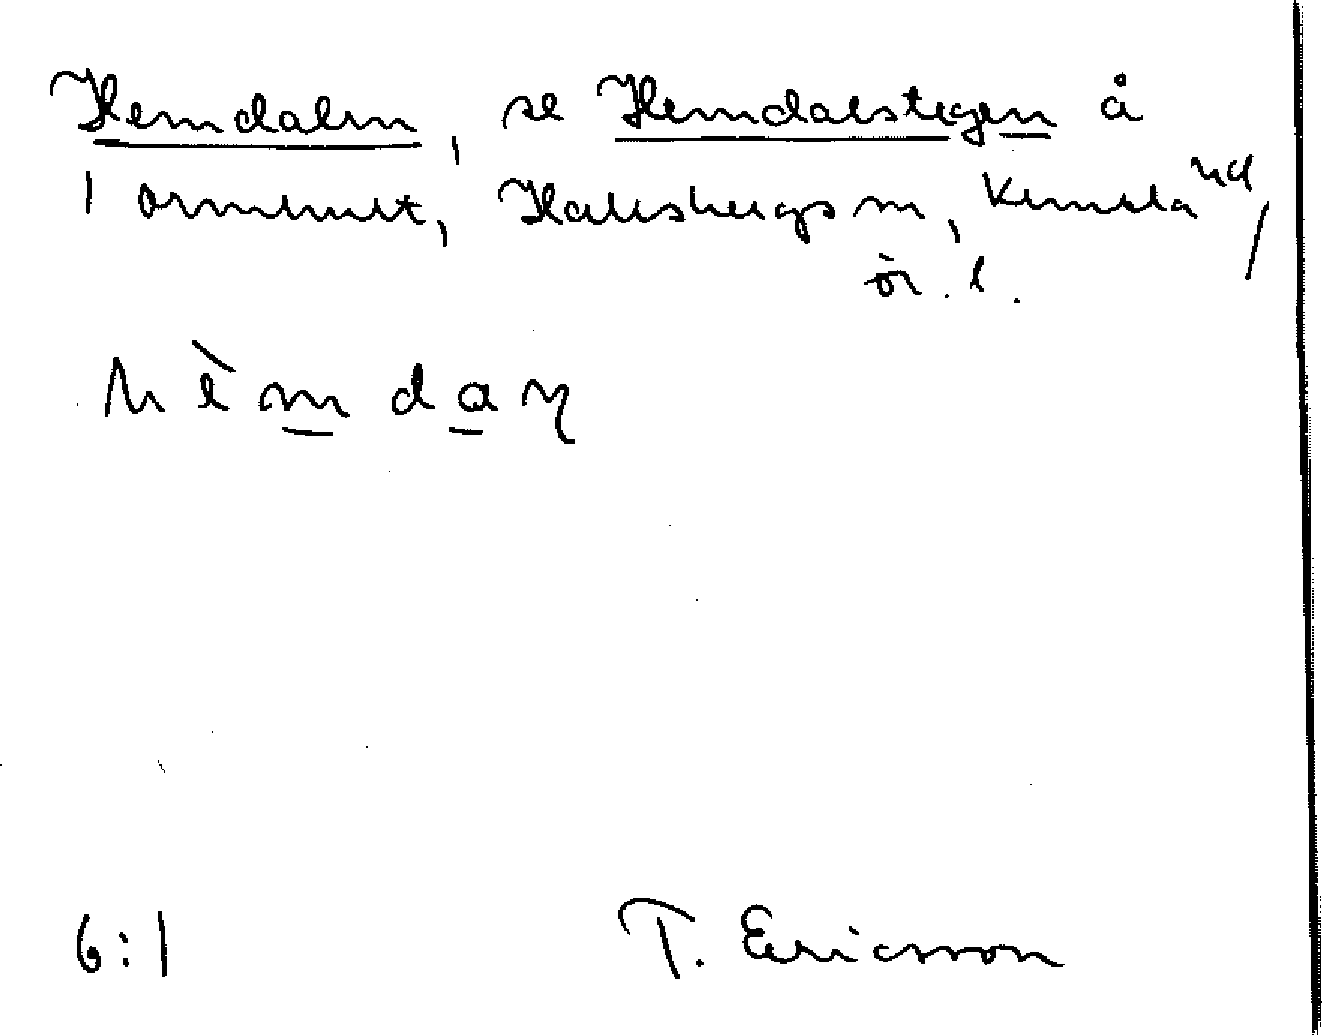 Hemdalen, se Hemdalstegen å
1 Ormhult, Hallsbergs sn, Kumla hd,
ör. l.
hèmdaɳ
6:1 T. Ericsson